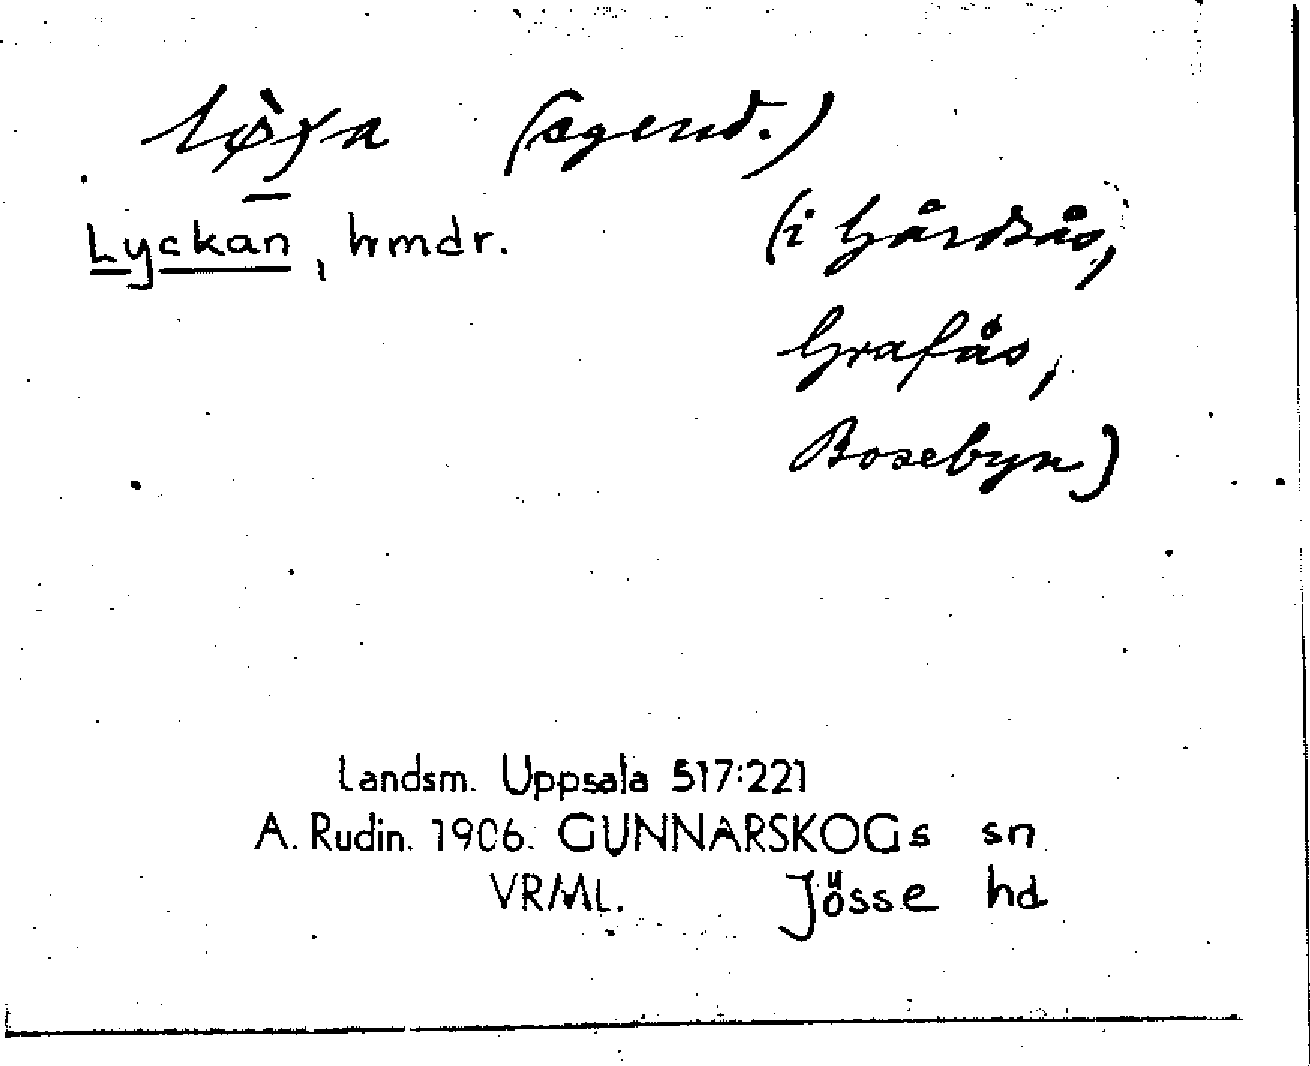 (ägend.)
Lyckan, hmdr. (i Gårdsås,
Grafås,
Bosebyn)
Landsm. Uppsala 517:221
A. Rudin. 1906. GUNNARSKOGs sn
VRML. Jösse hd